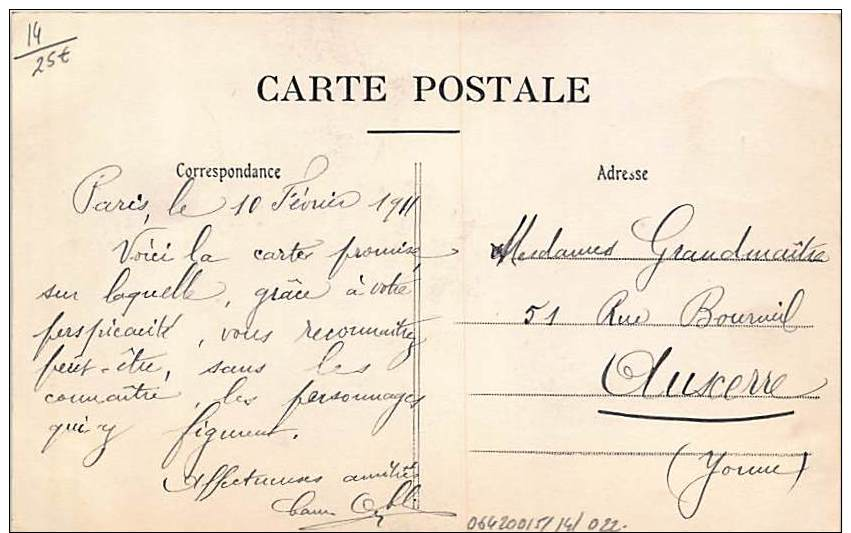 14
25€
CARTE POSTALE
Correspondance
Adresse
Paris, le 10 Février 1911
Voici la carte promise
sur laquelle, grâce à votre
perspicacité, vous reconnaitrez
peut-être, sans les
connaître, les personnages
qui y figurent.
Affectueuses amitiés
Mesdames Grandmaître
51 Rue
Auxerre
(Yonne)
06420015/14/022.